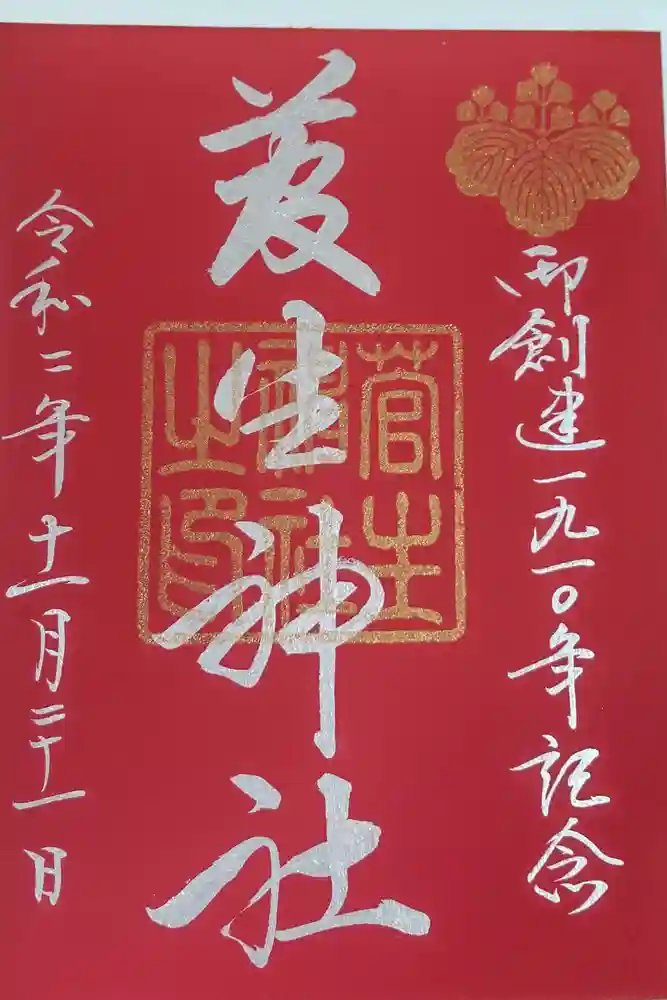 御創建一九一〇年記念
菅生神社
菅生
神社
之印
令和二年十一月二十一日